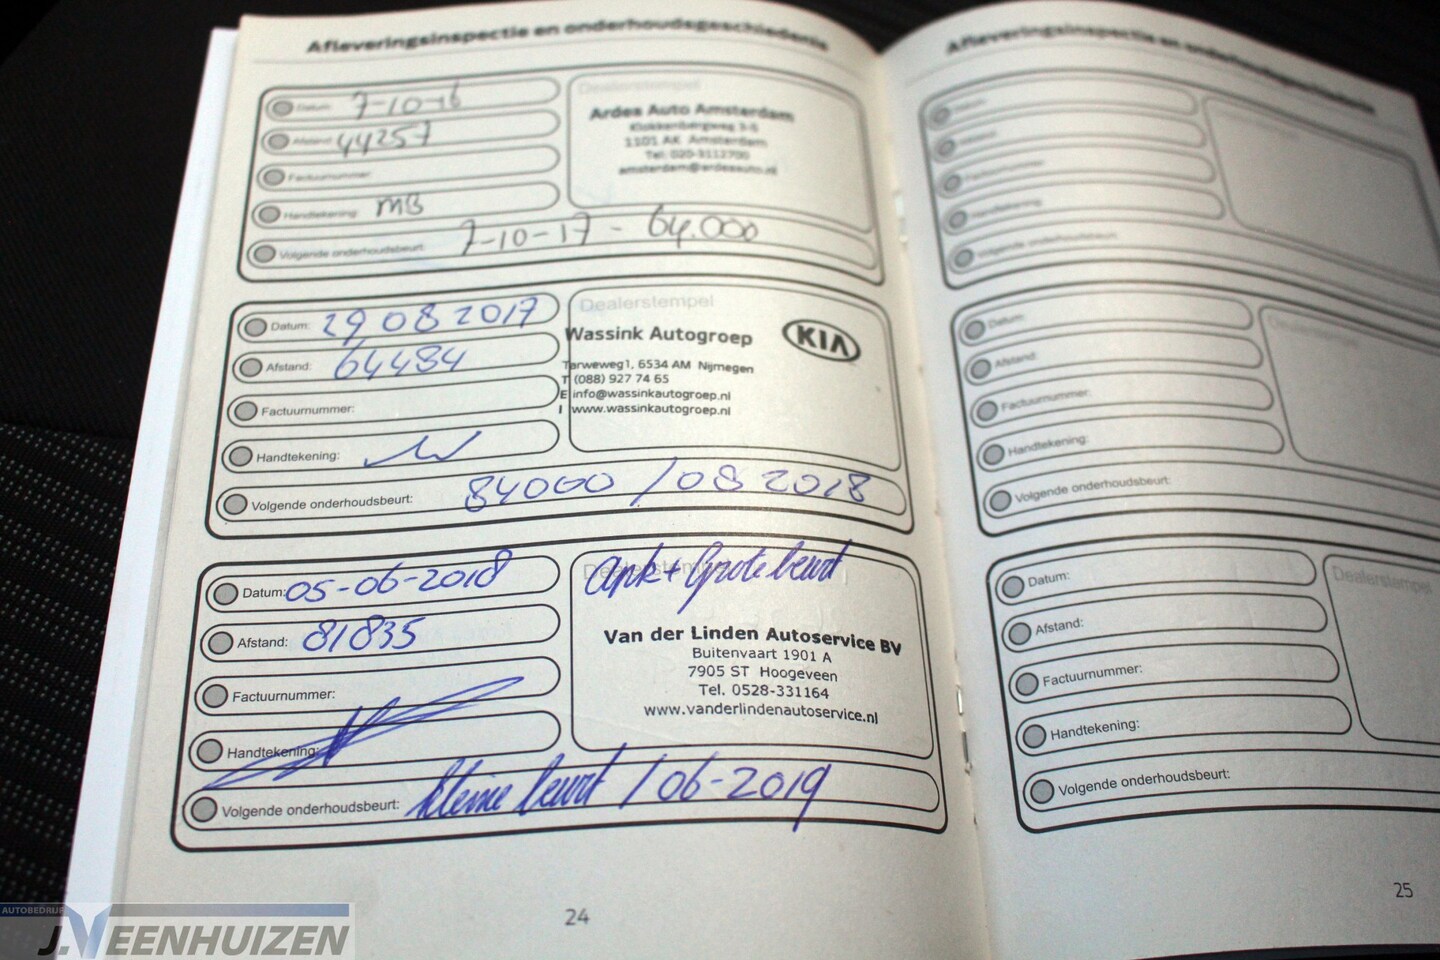 Afleveringsinspectie en onderhoudsgeschiedenis
Datum: 7-10-16
Afstand: 44257
Factuurnummer:
Handtekening: MB
Volgende onderhoudsbeurt: 7-10-17 - 64.000
Dealerstempel
Ardea Auto Amsterdam
Klokkenbergweg 3-5
1101 AK Amsterdam
Tel: 020-3112700
amsterdam@ardeaauto.nl
Datum: 29 08 2017
Afstand: 64484
Factuurnummer:
Handtekening:
Volgende onderhoudsbeurt: 84000 / 08 2018
Dealerstempel
Wassink Autogroep
KIA
Tarweweg1, 6534 AM Nijmegen
T (088) 927 74 65
E info@wassinkautogroep.nl
I www.wassinkautogroep.nl
Datum: 05-06-2018
Afstand: 81835
Factuurnummer:
Handtekening:
Volgende onderhoudsbeurt: kleine beurt / 06-2019
Dealerstempel
apk + Grote beurt
Van der Linden Autoservice BV
Buitenvaart 1901 A
7905 ST Hoogeveen
Tel. 0528-331164
www.vanderlindenautoservice.nl
24
Afleveringsinspectie en onderhoudsgeschiedenis
Datum:
Afstand:
Factuurnummer:
Handtekening:
Volgende onderhoudsbeurt:
Datum:
Afstand:
Factuurnummer:
Handtekening:
Volgende onderhoudsbeurt:
Datum:
Afstand:
Factuurnummer:
Handtekening:
Volgende onderhoudsbeurt:
Dealerstempel
25
AUTOBEDRIJF
J. VEENHUIZEN